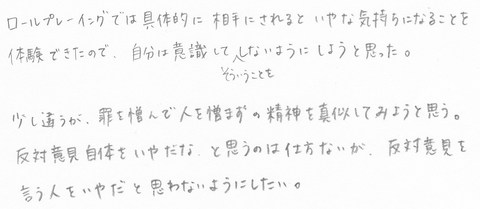 ロールプレーイングでは具体的に相手にされるといやな気持ちになることを
体験できたので、自分は意識してしないようにしようと思った。
そういうことを
少し違うが、罪を憎んで人を憎まずの精神を真似してみようと思う。
反対意見自体をいやだな、と思うのは仕方ないが、反対意見を
言う人をいやだと思わないようにしたい。